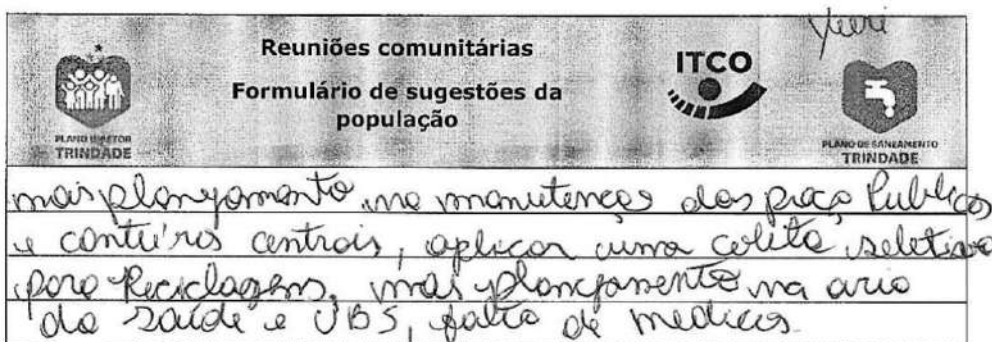 Yuri
Reuniões comunitárias
Formulário de sugestões da
população
ITCO
PLANO DIRETOR
TRINDADE
PLANO DE SANEAMENTO
TRINDADE
mais planejamento na manutenção das praça Publicas
e canteiros centrais, aplicar uma colita seletiva
para Reciclagens, mais planejamento na aria
da saúde e UBS, falta de medicos